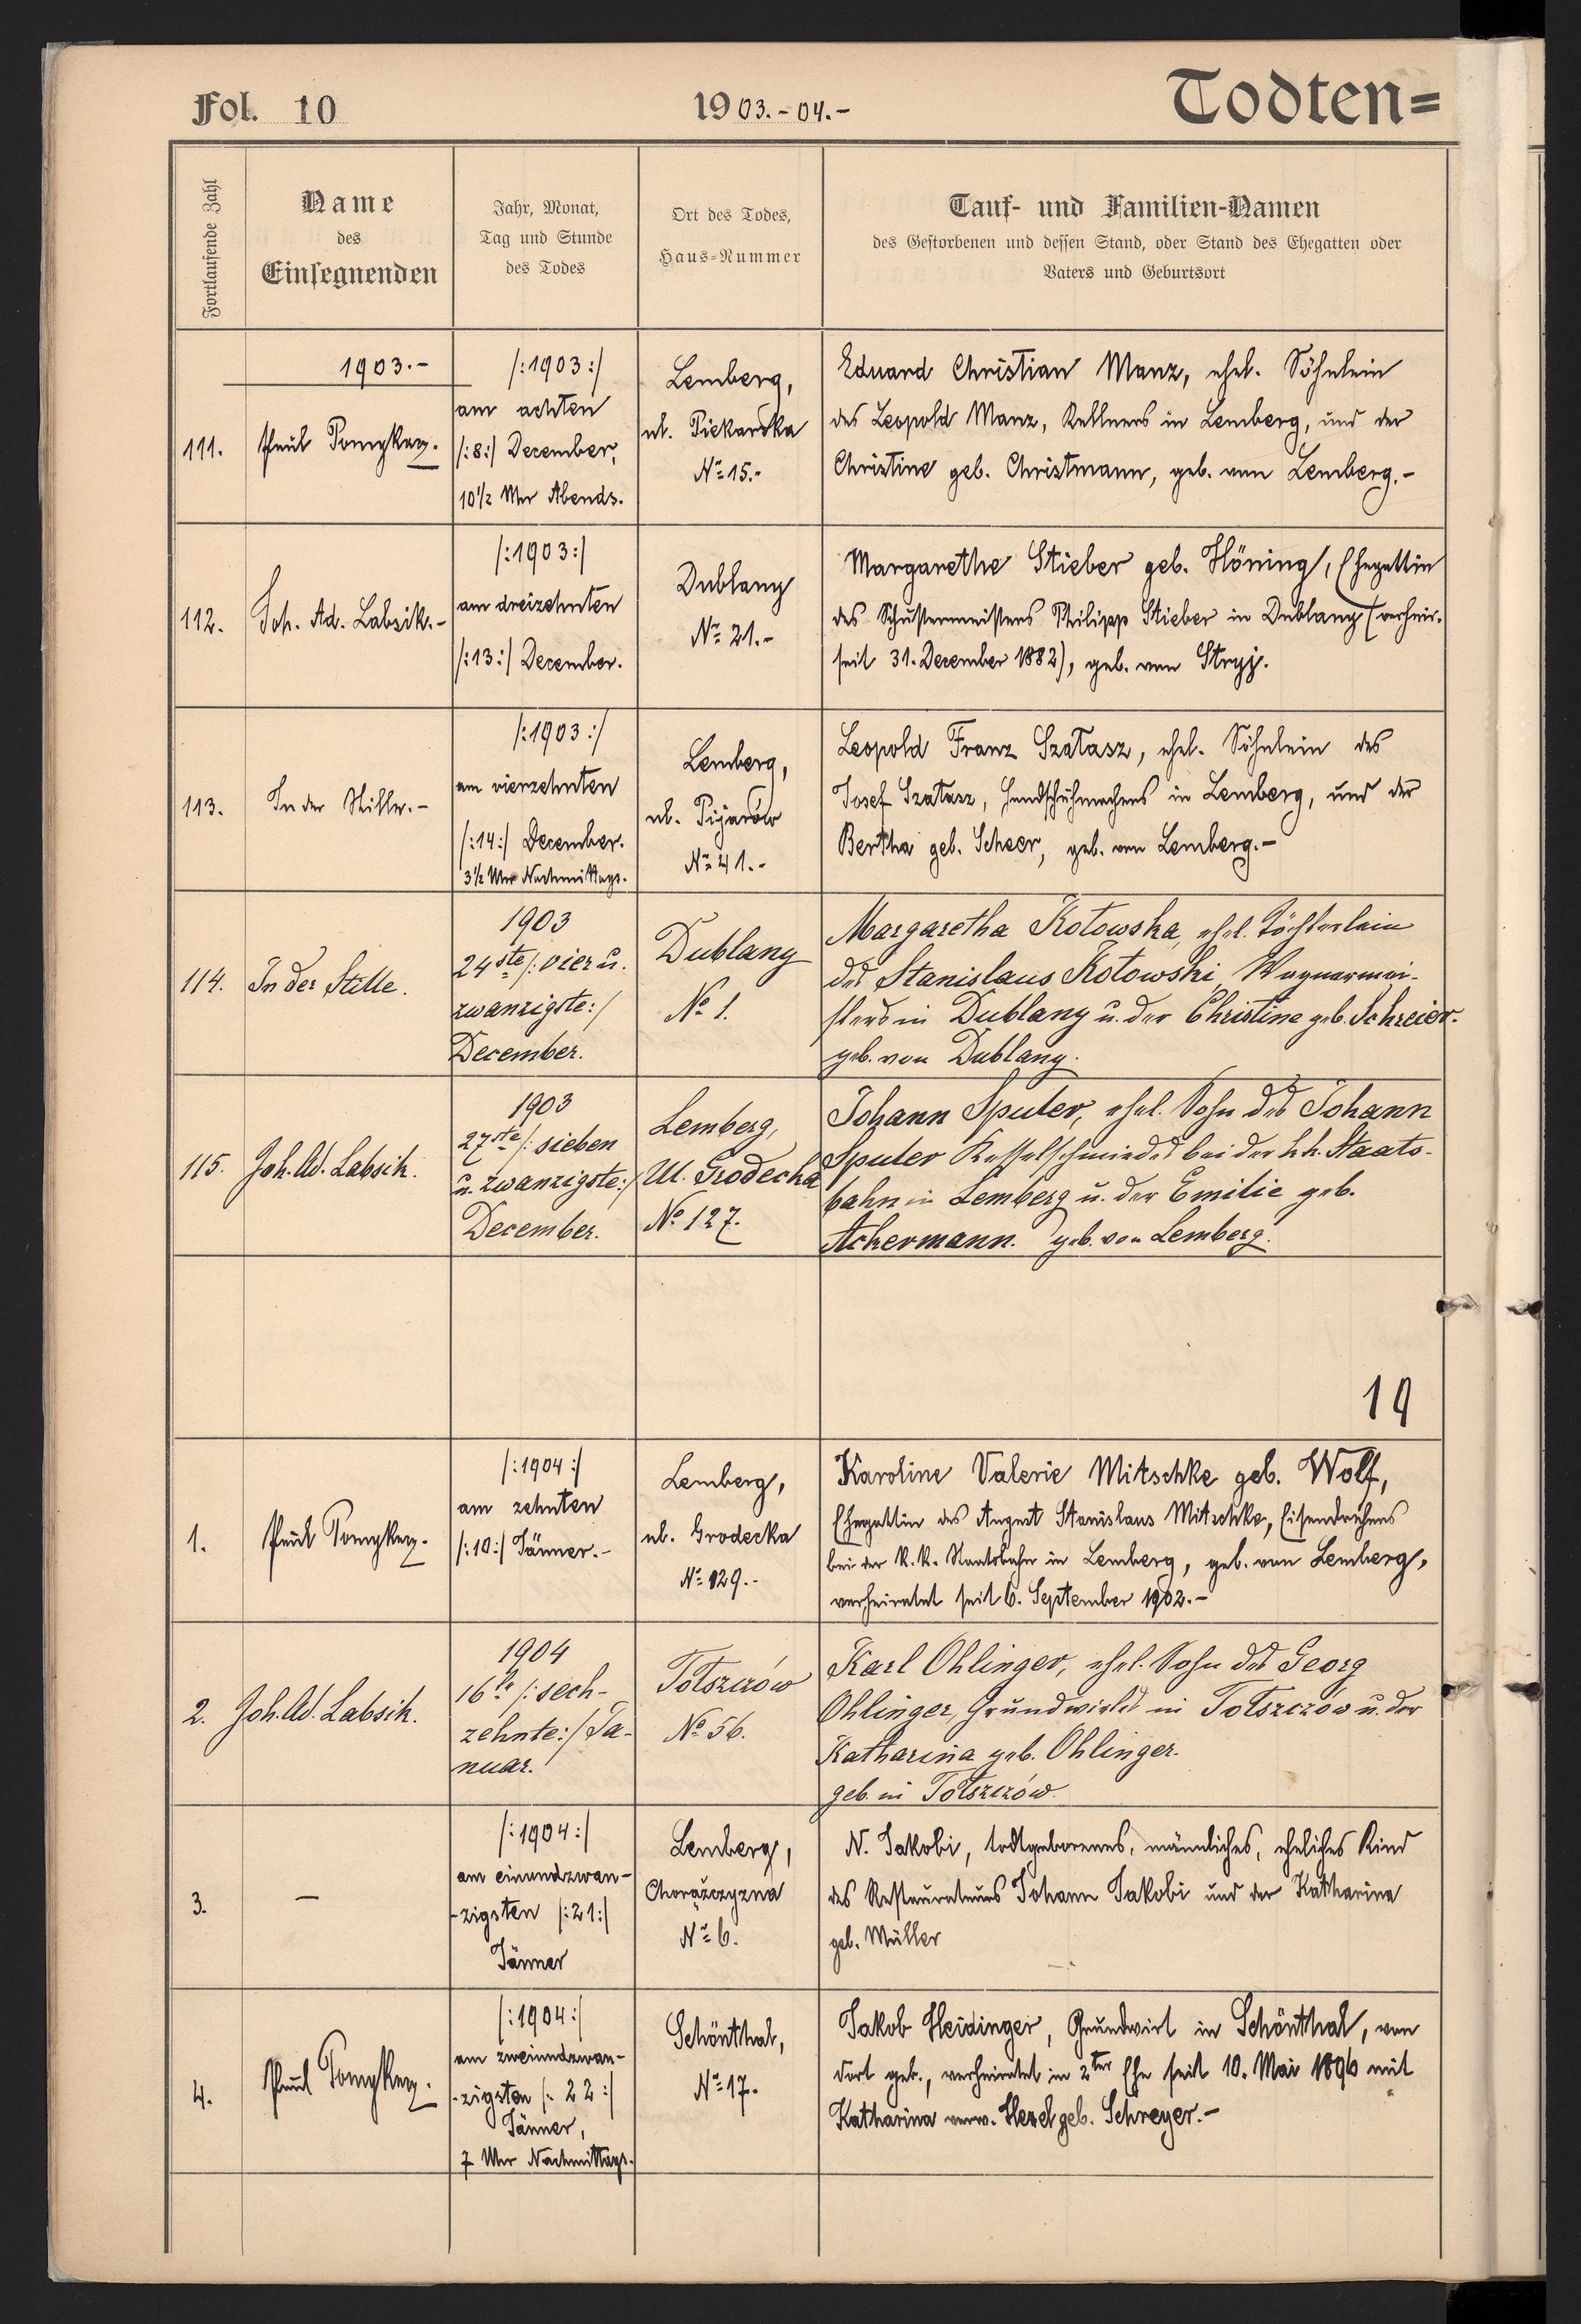 Fol. 10
1903.-04.-
Todten=
Fortlaufende Zahl
Name
des
Einsegnenden
Jahr, Monat,
Tag und Stunde
des Todes
Ort des Todes,
Haus-Nummer
Tauf- und Familien-Namen
des Gestorbenen und dessen Stand, oder Stand des Ehegatten oder
Vaters und Geburtsort
1903.-
111.
Paul
/:1903:/
am achten
/:8:/ December,
10½ Uhr Abends.
Lemberg,
ul. Piekarska
No 15.-
Eduard Christian Manz, ehel. Söhnlein
des Leopold Manz, Kellners in Lemberg, und der
Christine geb. Christmann, geb. von Lemberg.-
112.
Joh. Ad. Labsik.-
/:1903:/
am dreizehnten
/:13:/ December.
Dublany
No 21.-
Margarethe Stieber geb. Höning, Ehegattin
des Schustermeisters Philipp Stieber in Dublany (verheir.
seit 31. December 1882), geb. von Stryj.
113.
In der Stille.-
/:1903:/
am vierzehnten
/:14:/ December.
3½ Uhr Nachmittags.
Lemberg,
ul. Pijarów
No 41.-
Leopold Franz Szałasz, ehel. Söhnlein des
Josef Szałasz, Handschuhmachers in Lemberg, und der
Bertha geb. Scheer, geb. von Lemberg.-
114.
In der Stille.
1903
24ste /: vier u.
zwanzigste:/
December.
Dublany
No 1.
Margaretha Kotowska, ehel. Töchterlein
des Stanislaus Kotowski, Wagnermei-
sters in Dublany u. der Christine geb. Schreier.
geb. von Dublany.
115.
Joh. Ad. Labsik.
1903
27ste /: sieben
u. zwanzigste:/
December.
Lemberg,
Ul. Grodecka
No 127.
Johann Sputer, ehel. Sohn des Johann
Sputer Kesselschmiedes bei der k.k. Staats-
bahn in Lemberg u. der Emilie geb.
Ackermann. geb. von Lemberg.
19
1.
Paul
/:1904:/
am zehnten
/:10:/ Jänner.-
Lemberg,
ul. Grodecka
No 129.-
Karoline Valerie Mitschke geb. Wolf,
Ehegattin des August Stanislaus Mitschke, Eisendrehers
bei der k.k. Staatsbahn in Lemberg, geb. von Lemberg,
verheiratet seit 6. September 1902.-
2.
Joh. Ad. Labsik.
1904
16te /: sech-
zehnte:/ Ja-
nuar.
Tołszczów
No 56.
Karl Ohlinger, ehel. Sohn des Georg
Ohlinger, Grundwirtes in Tołszczów u. der
Katharina geb. Ohlinger.
geb. in Tołszczów.
3.
-
/:1904:/
am einundzwan-
-zigsten /:21:/
Jänner
Lemberg,
Chorążczyzna
No 6.
N. Jakobi, todtgeborenes, männliches, eheliches Kind
des Restaurateurs Johann Jakobi und der Katharina
geb. Müller
4.
Paul
/:1904:/
am zweiundzwan-
-zigsten /: 22:/
Jänner,
7 Uhr Nachmittags.
Schönthal,
No 17.
Jakob Heidinger, Grundwirt in Schönthal, von
dort geb., verheiratet in 2ter Ehe seit 10. Mai 1896 mit
Katharina verw. Hezel geb. Schreyer.-